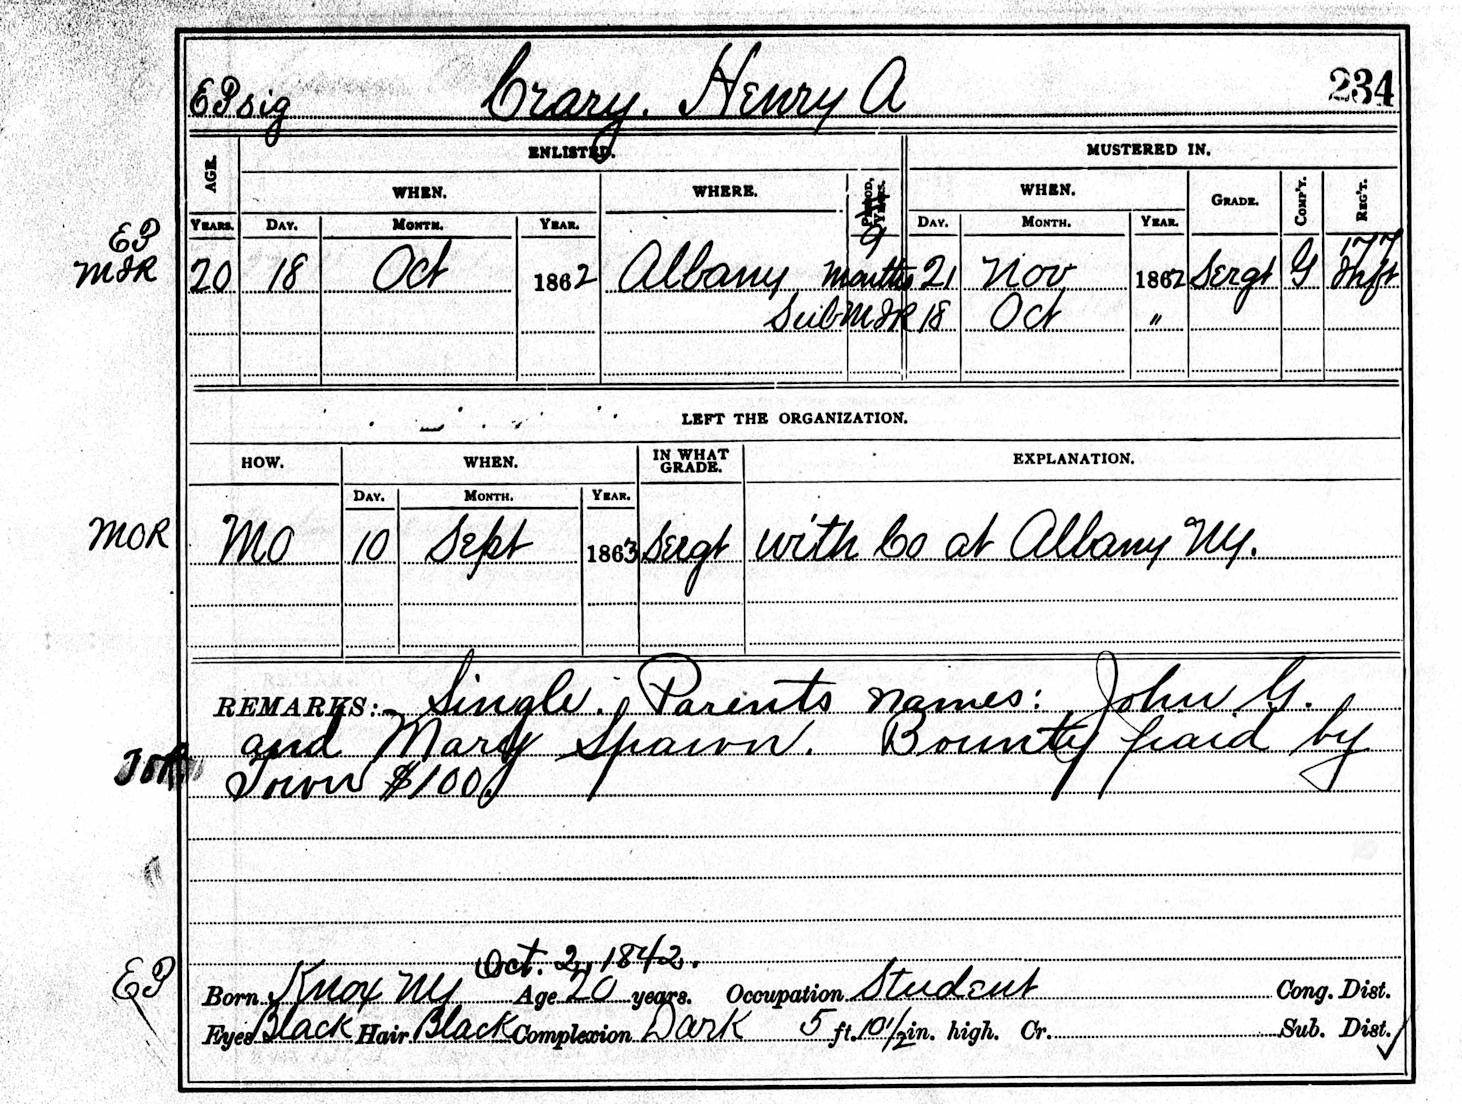 EP sig Crary, Henry A 234
ENLISTED. MUSTERED IN.
AGE. WHEN. WHERE. PERIOD, YEARS. WHEN. GRADE. COMP'Y. REG'T.
YEARS. DAY. MONTH. YEAR. DAY. MONTH. YEAR.
EP 9 177
MIR 20 18 Oct 1862 Albany months 21 Nov 1862 Sergt G Inft
Sub MIR 18 Oct "
LEFT THE ORGANIZATION.
HOW. WHEN. IN WHAT GRADE. EXPLANATION.
DAY. MONTH. YEAR.
MOR MO 10 Sept 1863 Sergt with Co at Albany NY.
REMARKS: Single. Parents names: John G.
and Mary Spawn. Bounty paid by
Town $100.
Oct. 2, 1842.
EP Born Knox NY Age 20 years. Occupation Student Cong. Dist.
Eyes Black Hair Black Complexion Dark 5 ft. 10 1/2 in. high. Cr. Sub. Dist.